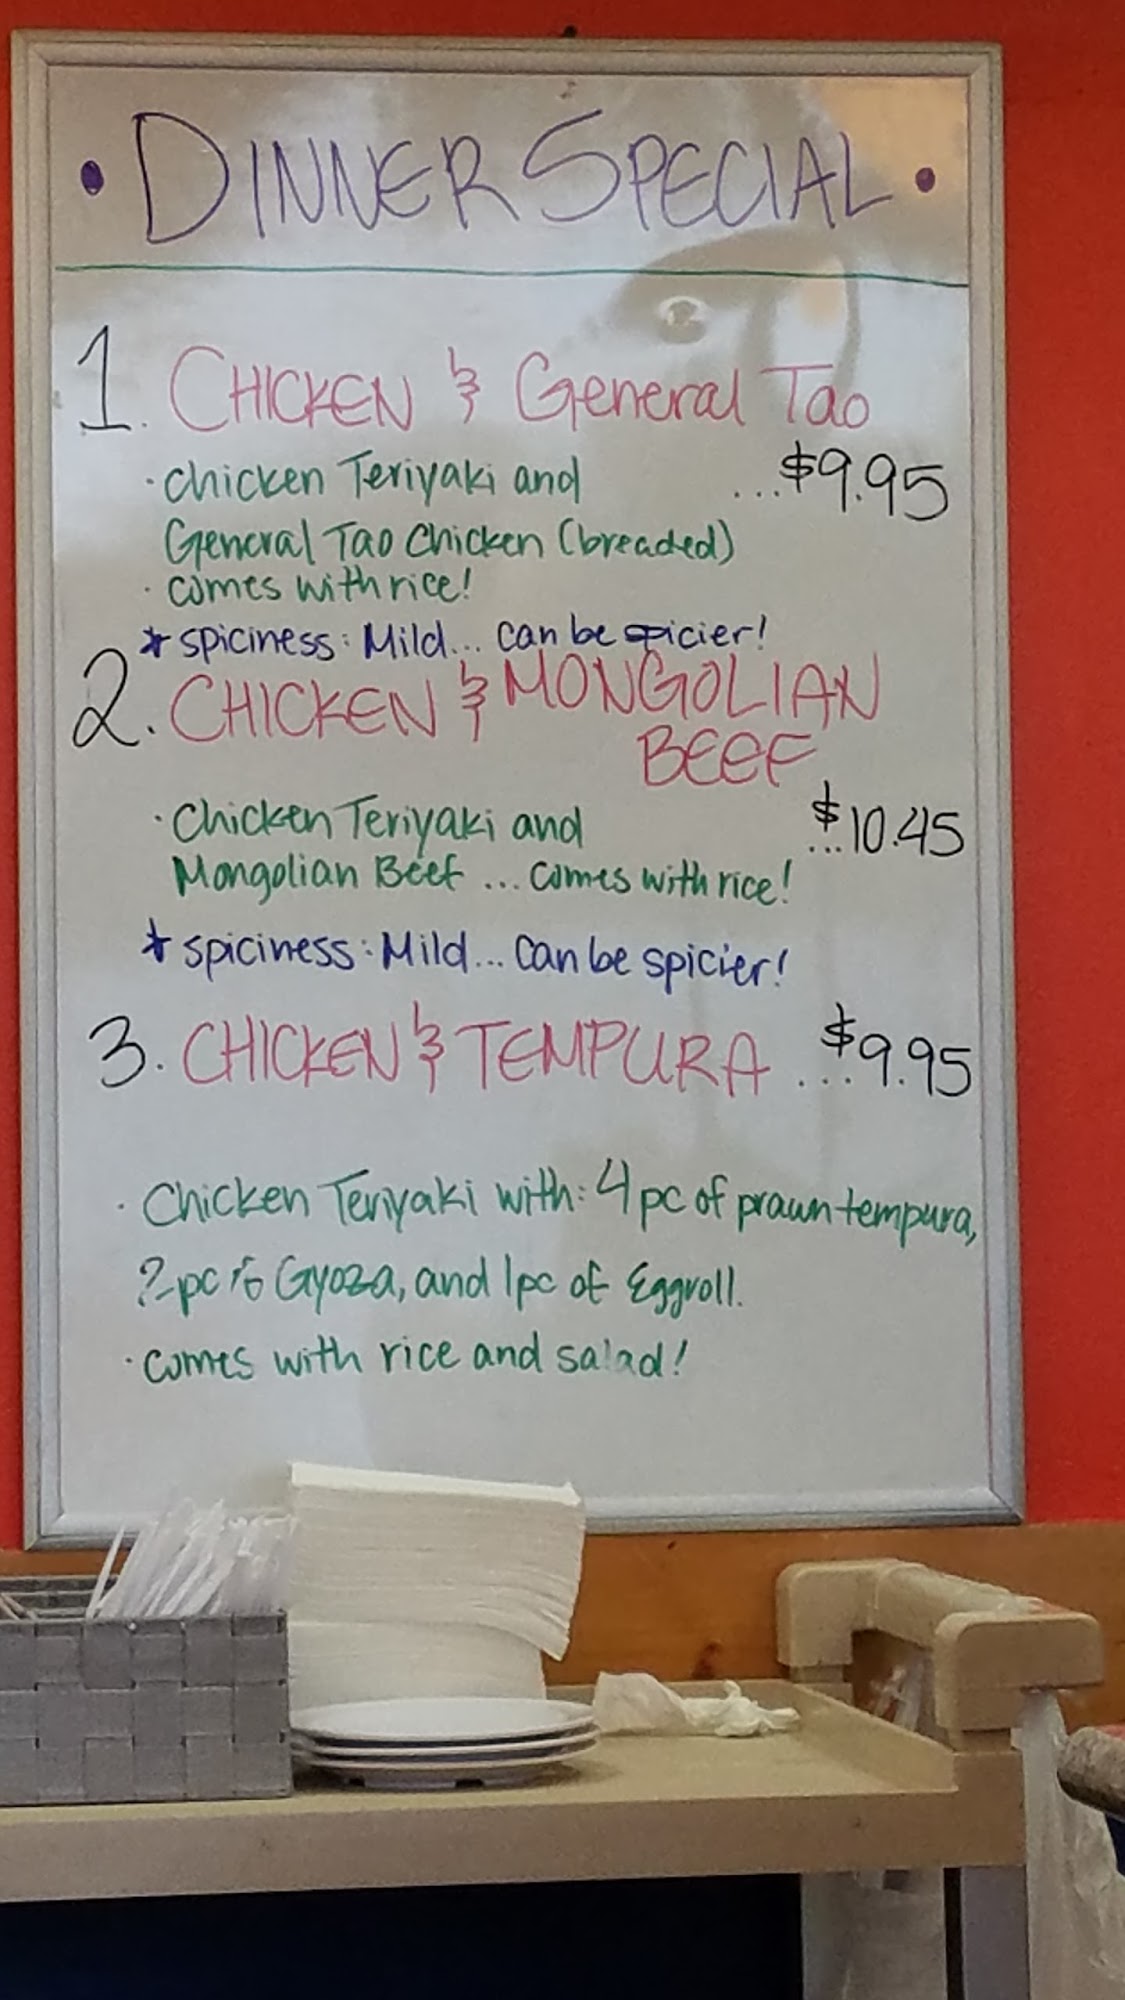 • DINNER SPECIAL •
1. CHICKEN & General Tao
· chicken Teriyaki and ...$9.95
General Tao Chicken (breaded)
· comes with rice!
* spiciness: Mild... can be spicier!
2. CHICKEN & MONGOLIAN
BEEF
· Chicken Teriyaki and ...$10.45
Mongolian Beef ... comes with rice!
* spiciness: Mild... can be spicier!
3. CHICKEN & TEMPURA ...$9.95
· Chicken Teriyaki with: 4 pc of prawn tempura,
2 pc Gyoza, and 1 pc of Eggroll.
· comes with rice and salad!